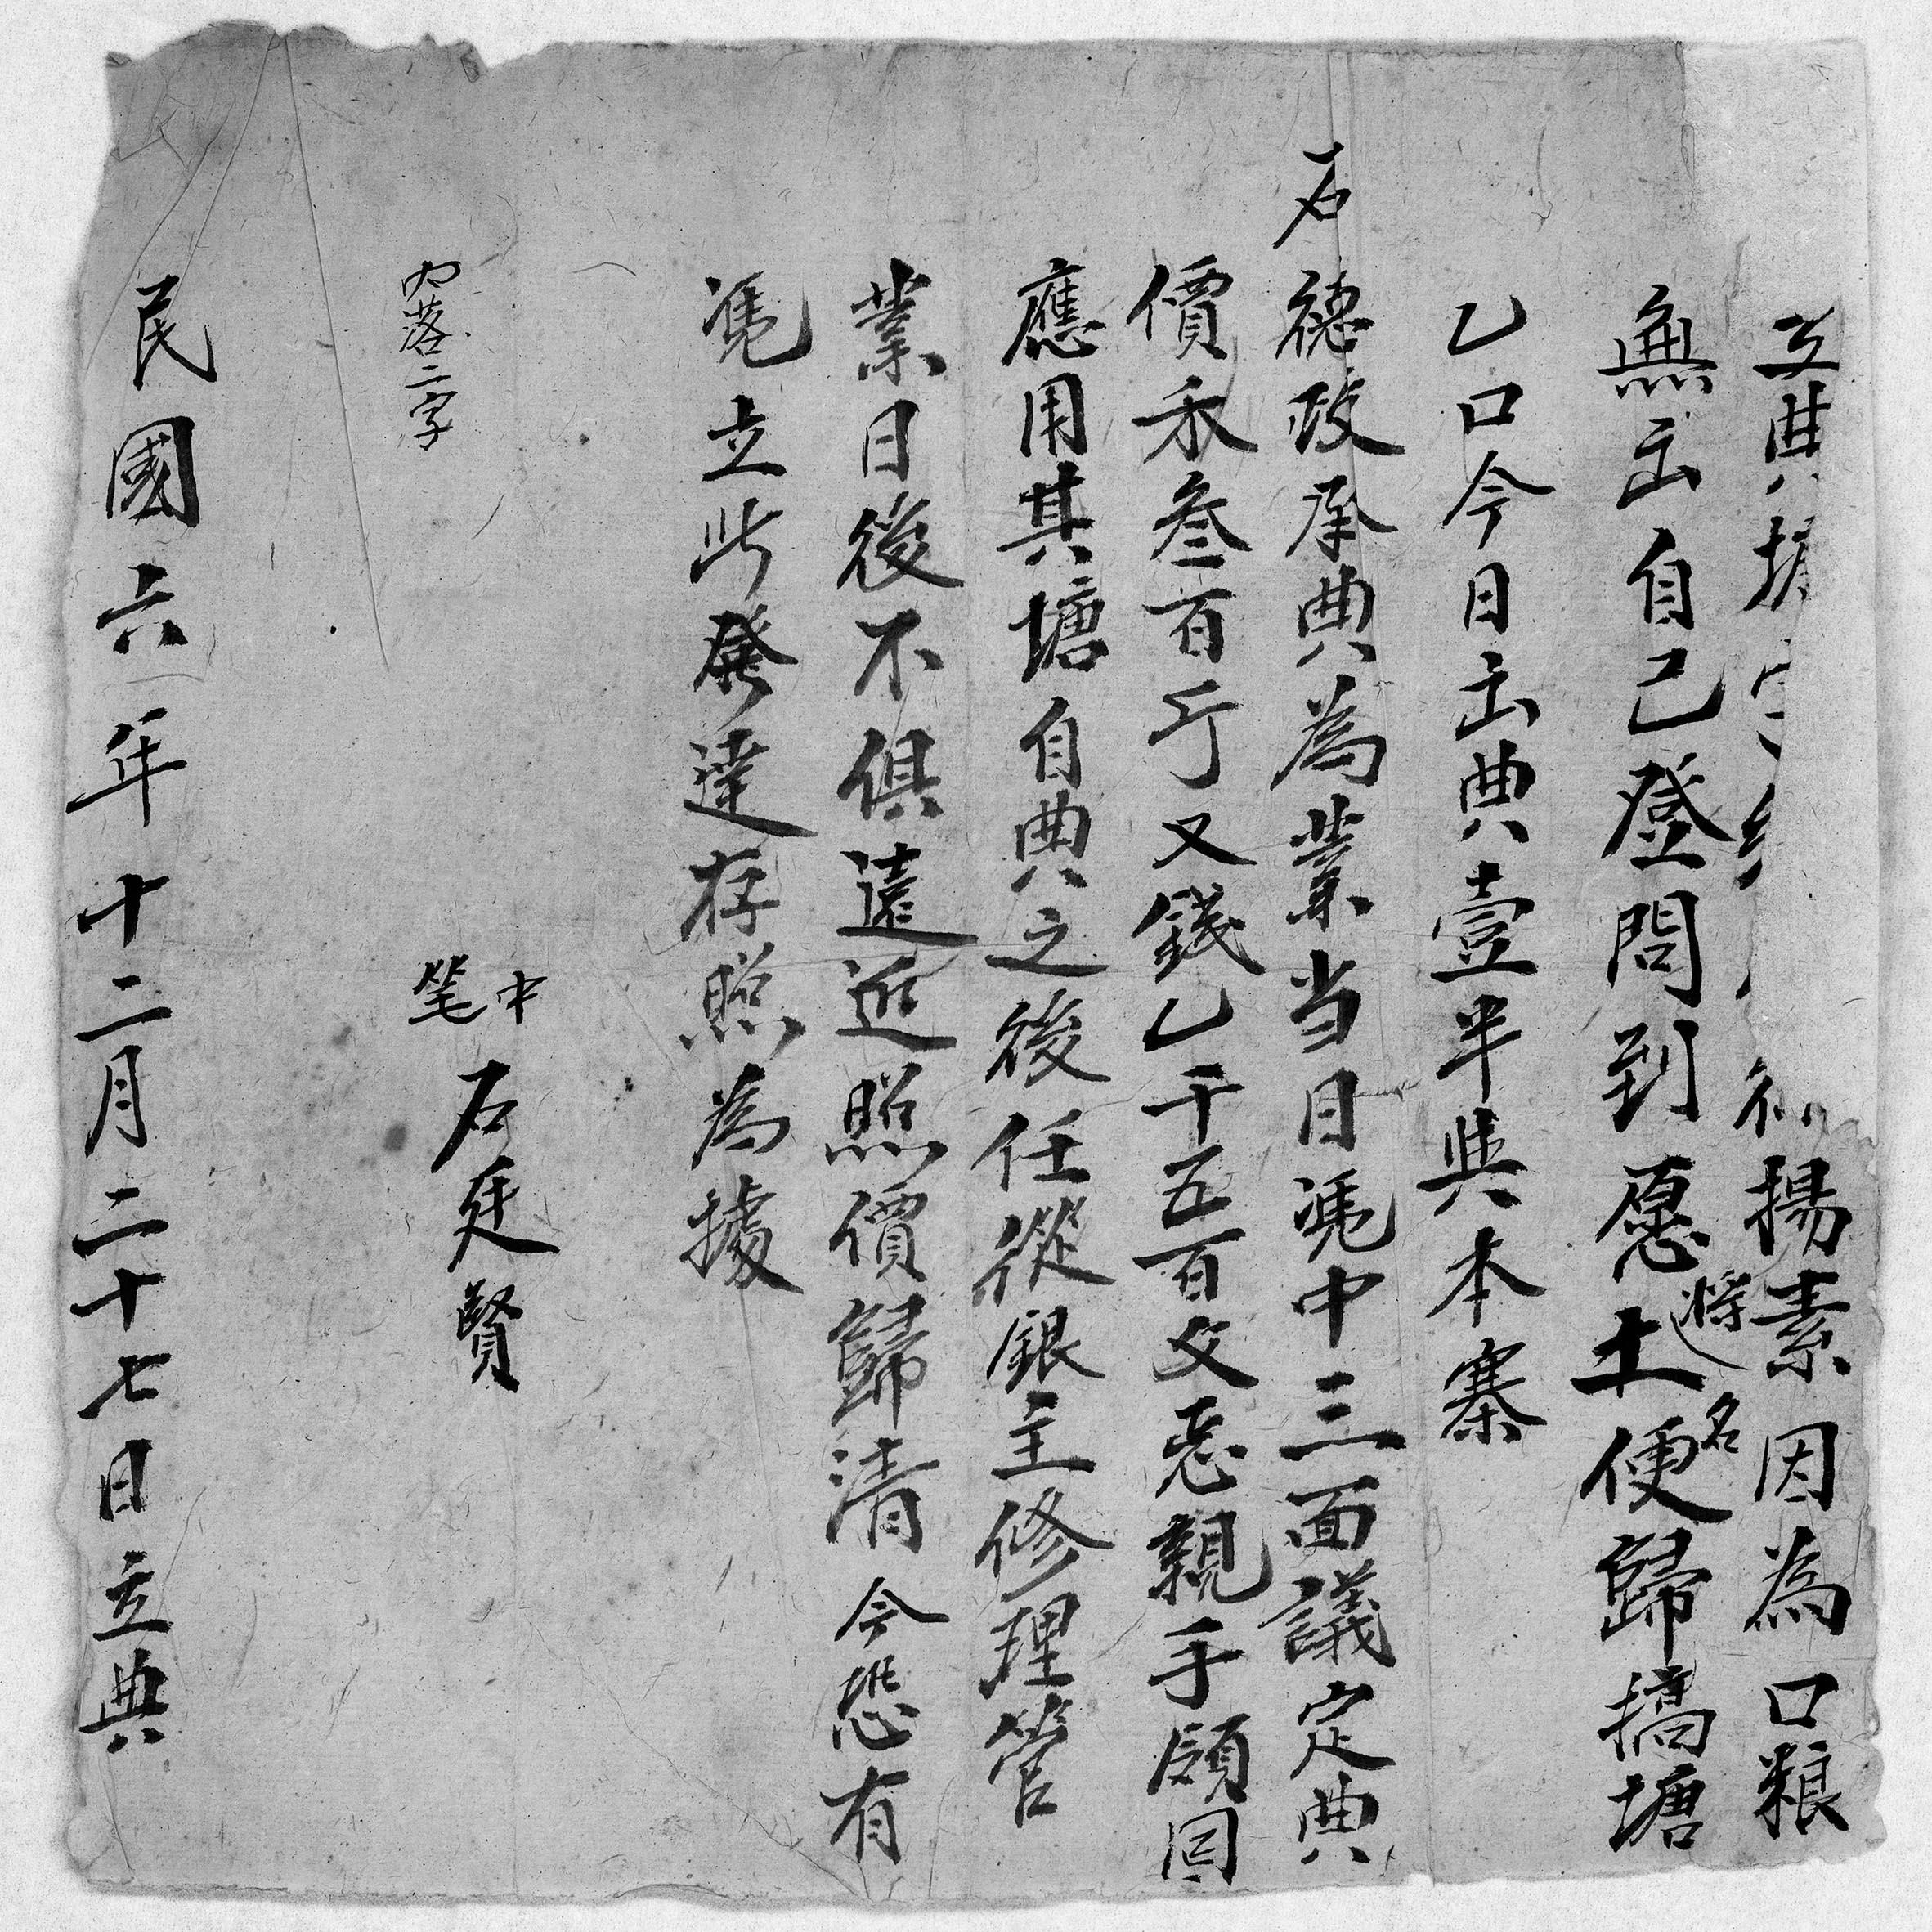 立典塘字 揚素因為口粮
無出自己登問到愿將土名便歸撟塘
乙口今日出典壹半典本寨
石德政承典為業当日凴中三面議定典
價禾叁百斤又錢乙千五百文悉親手領回
應用其塘自典之後任從銀主修理管
業日後不俱遠近照價歸清今恐有
凴立此發達存照為據
中
筆 石廷賢
內落二字
民國六年十二月二十七日立典